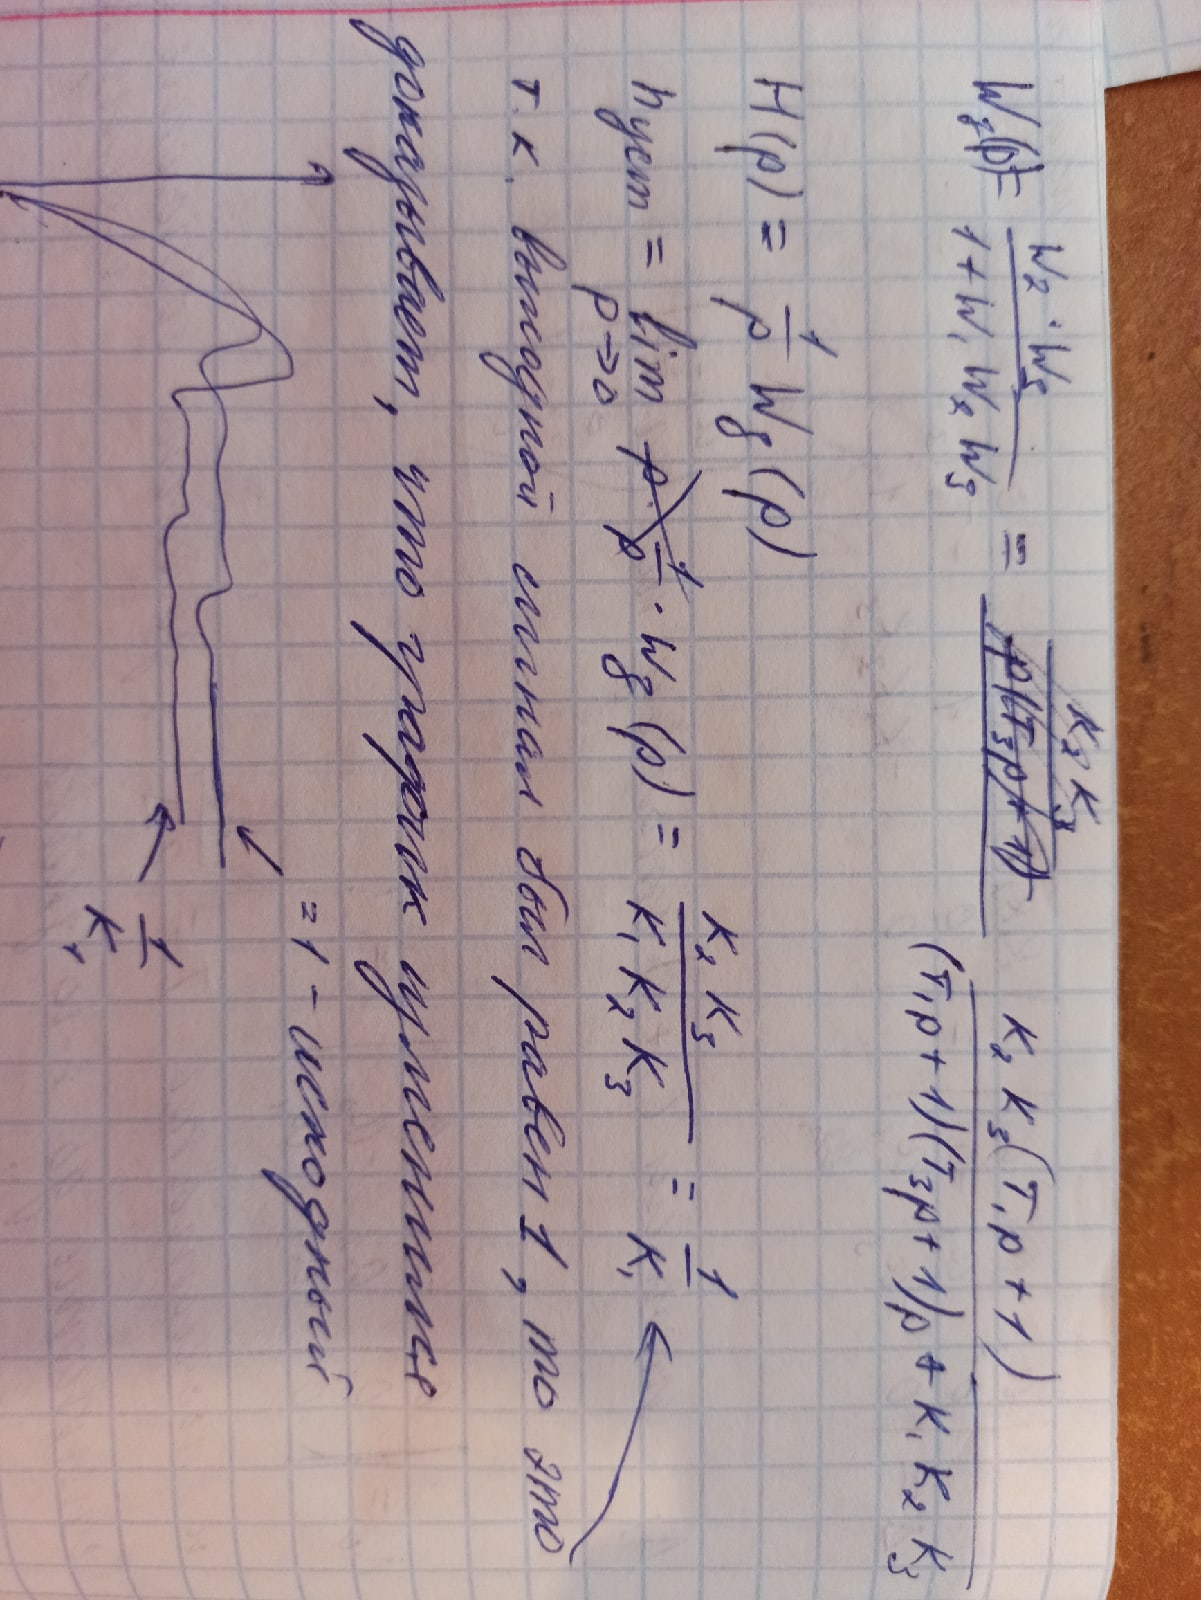 W₃(p) = W₂ · W₃ / 1 + W₁ W₂ W₃ = K₂ K₃ / p(T₃p + 1) K₂ K₃ (T₁p + 1) / (T₁p + 1)(T₃p + 1)p + K₁ K₂ K₃
H(p) = 1/p W₃(p)
hуст = lim p · 1/p · W₃(p) = K₂ K₃ / K₁ K₂ K₃ = 1/K₁
p→0
т.к. выходной сигнал был равен 1, то это
доказывает, что график изменится
= 1 - исходный
1/K₁